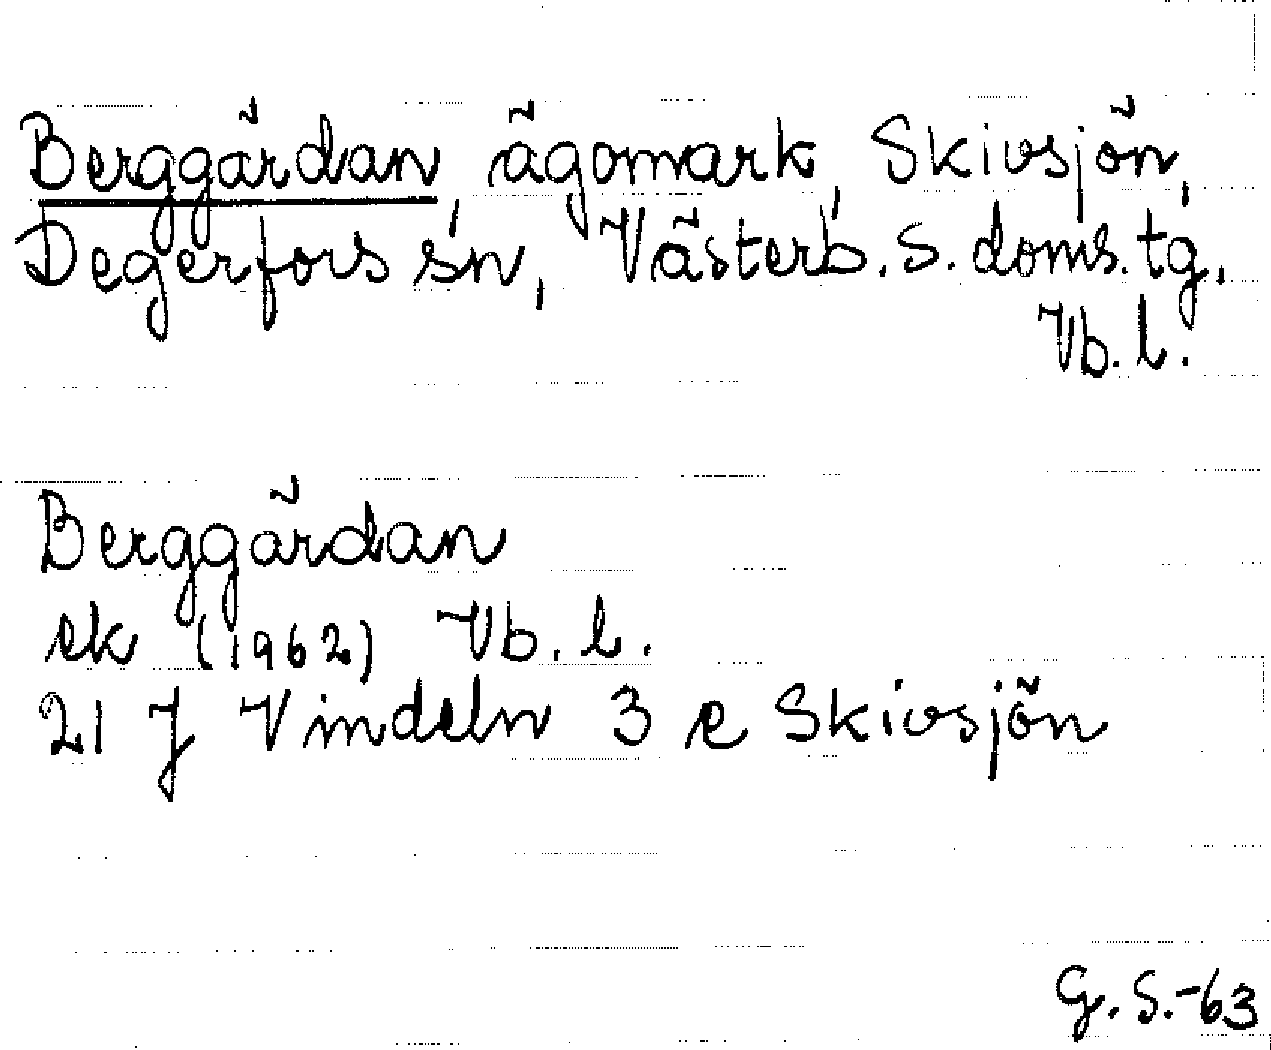 Berggärdan, ägomark, Skivsjön,
Degerfors sn, Västerb. s. doms. tg,
Vb. l.
Berggärdan
ek (1962) Vb. l.
21 J Vindeln 3 e Skivsjön
G. S. -63